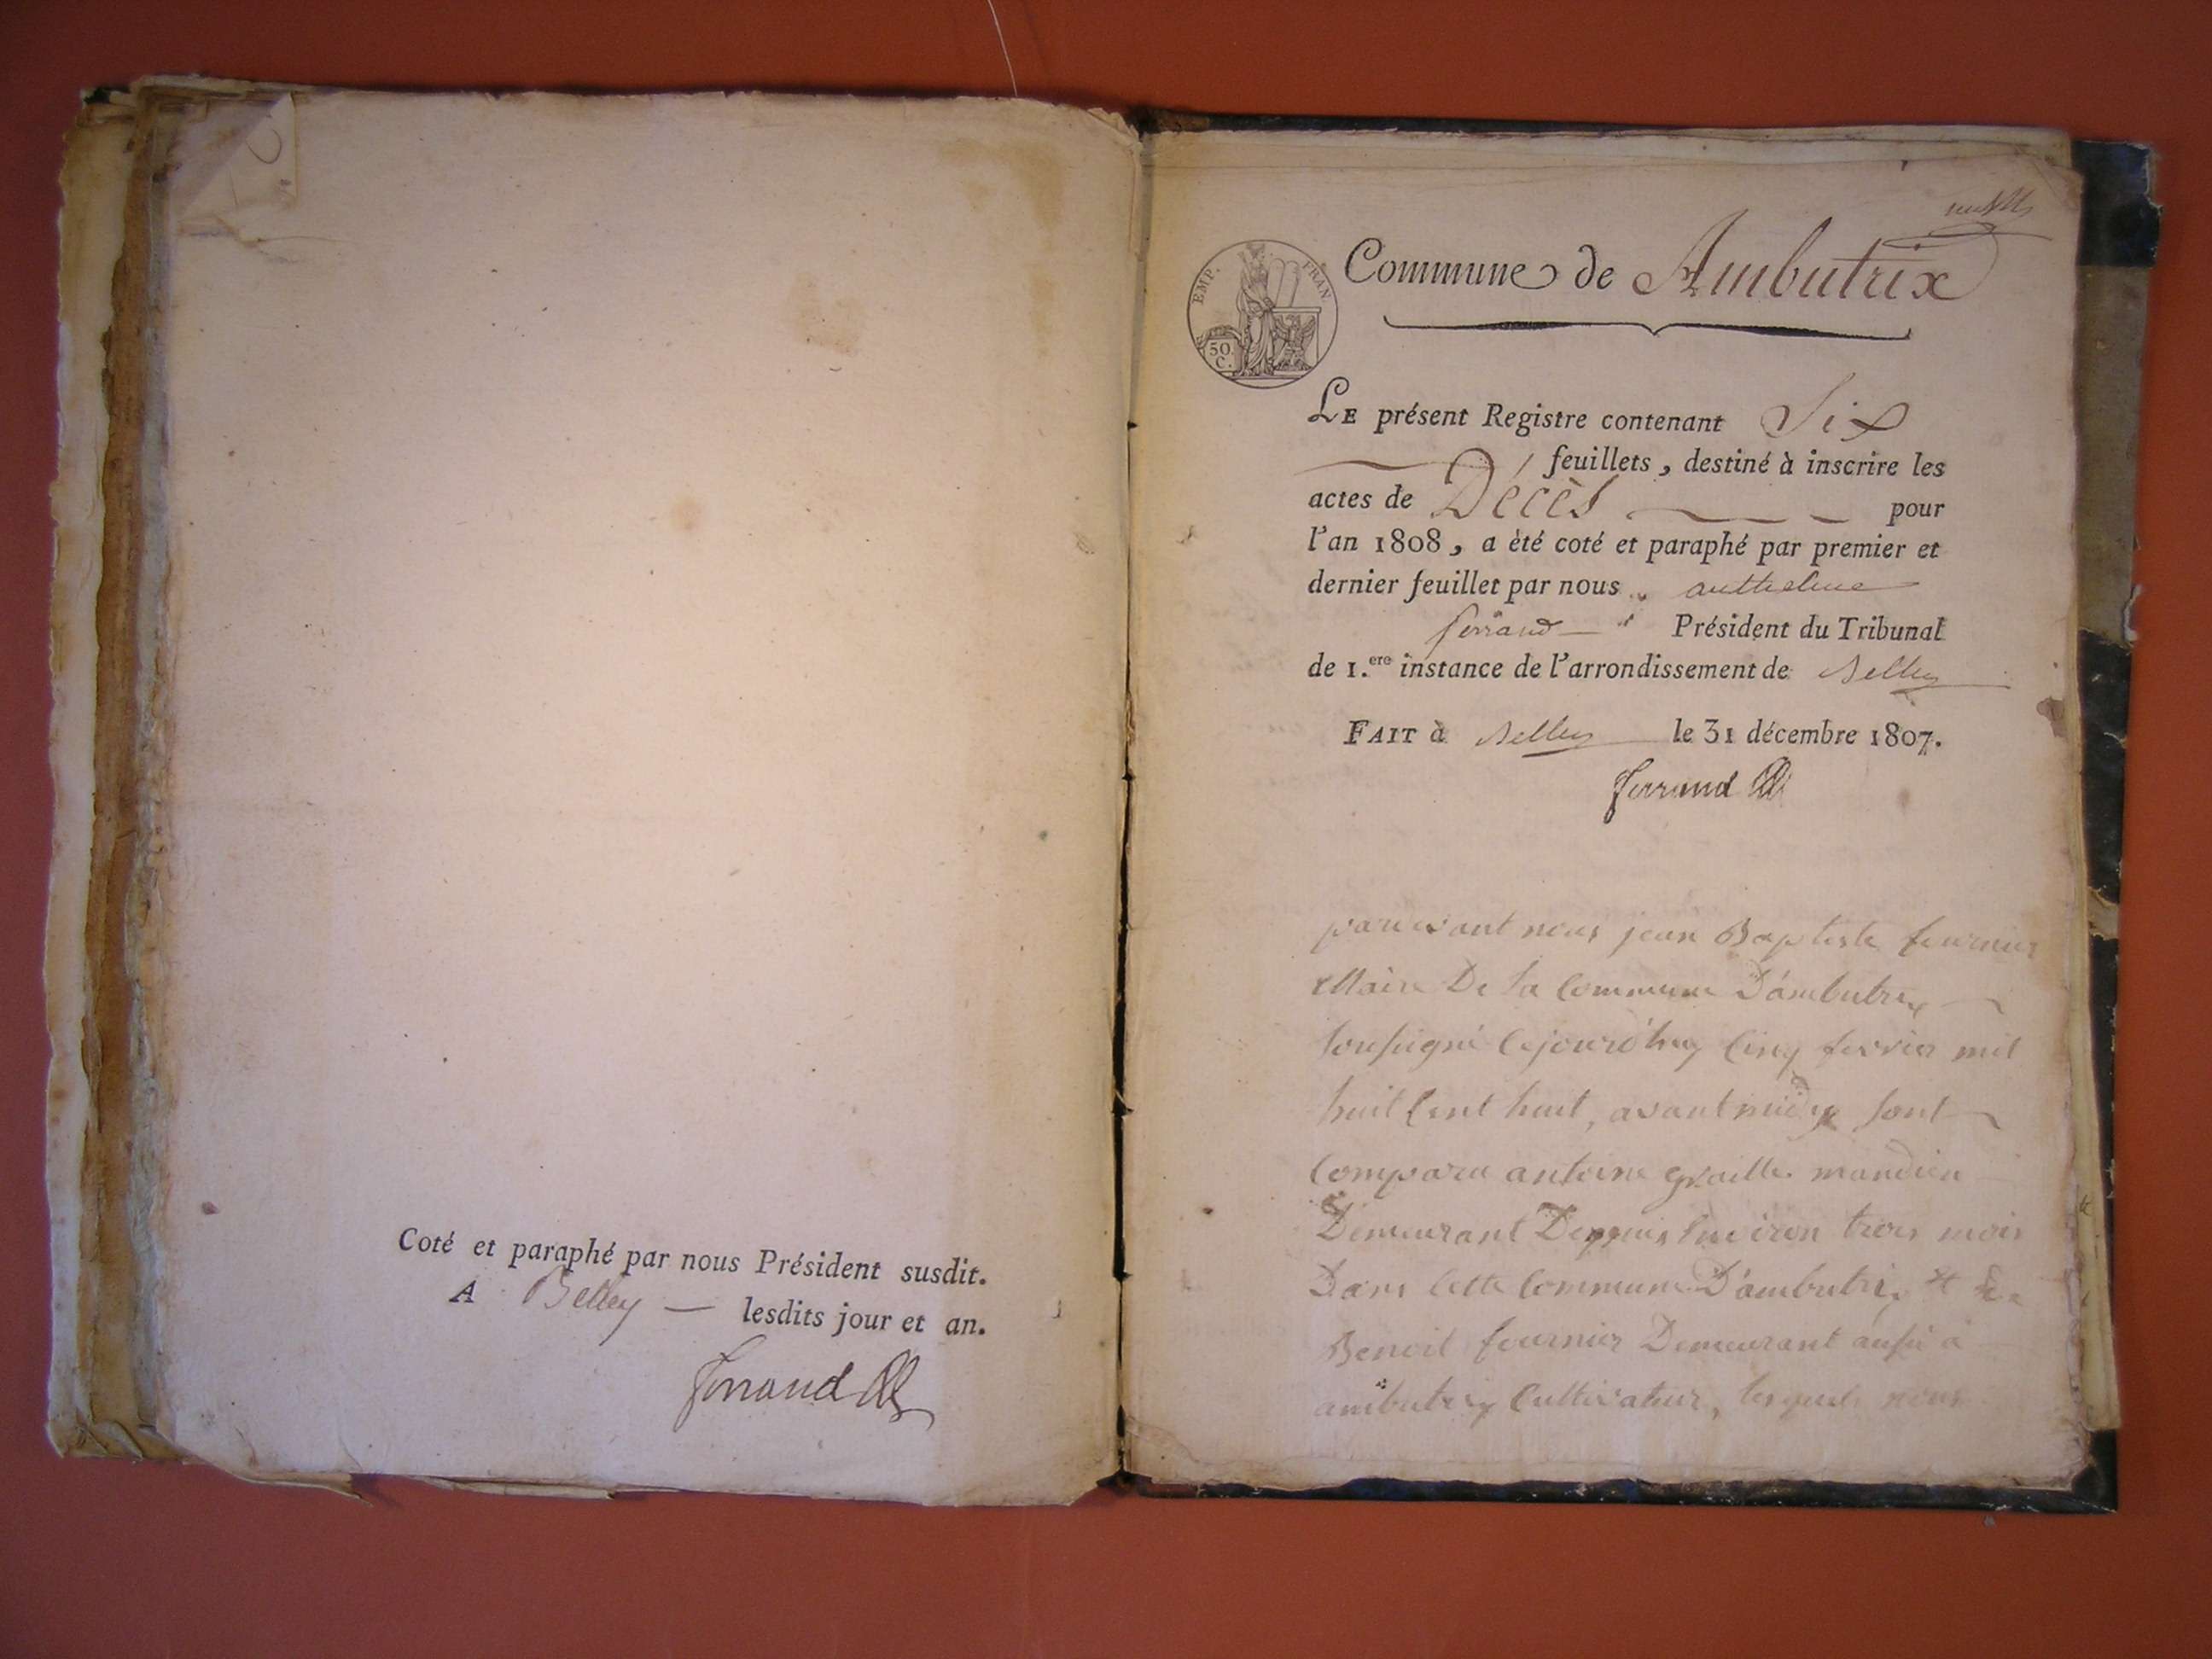 Coté et paraphé par nous Président susdit.
A Belley — lesdits jour et an.
ferrand
Commune de Ambutrix
EMP. FRAN.
50.
C.
LE présent Registre contenant Six
feuillets, destiné à inscrire les
actes de Décès pour
l'an 1808, a été coté et paraphé par premier et
dernier feuillet par nous anthelme
ferrand Président du Tribunal
de 1.ere instance de l'arrondissement de Belley
FAIT à Belley le 31 décembre 1807.
ferrand
pardevant nous jean Baptiste fournier
Maire De la Commune D'ambutrix
soussigné Cejourd'huy Cinq fevrier mil
huit Cent huit, avant midy sont
Comparu antoine mandien
Demeurant Deppuis Environ trois mois
Dans Cette Commune D'ambutrix
Benoit fournier Demeurant aussi à
ambutrix Cultivateur, lesquels nous